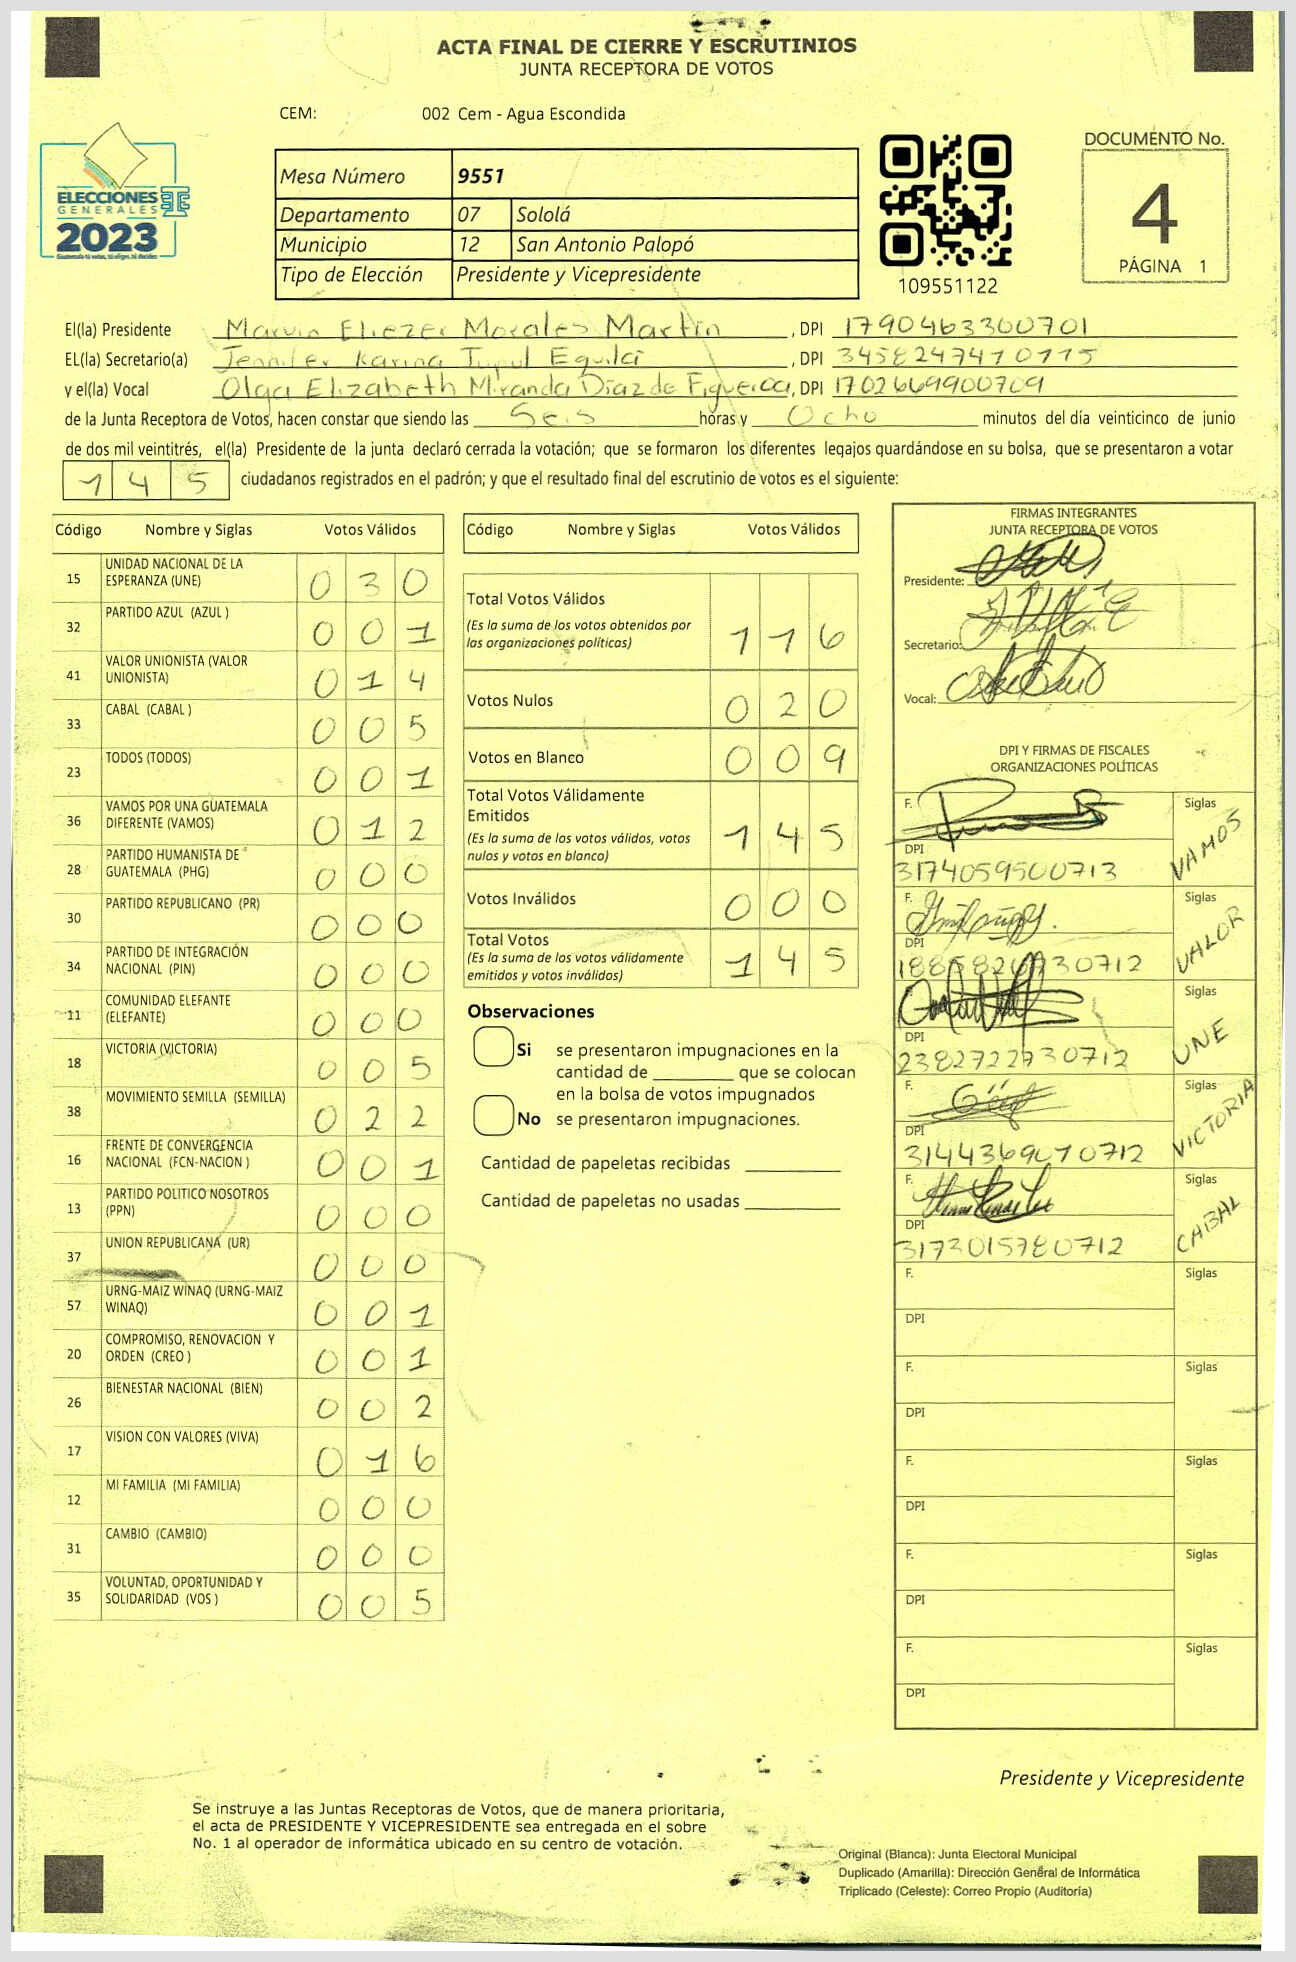 ACTA FINAL DE CIERRE Y ESCRUTINIOS
JUNTA RECEPTORA DE VOTOS
CEM: 002 Cem - Agua Escondida
ELECCIONES
GENERALES
2023
Guatemala tú votas, tú eliges, tú decides
Mesa Número 9551
Departamento 07 Sololá
Municipio 12 San Antonio Palopó
Tipo de Elección Presidente y Vicepresidente
109551122
DOCUMENTO No.
4
PÁGINA 1
El(la) Presidente Marvin Eliezer Morales Martín, DPI 1790463300701
EL(la) Secretario(a) Jennifer Karina Tupul Equilá, DPI 3458247410115
y el(la) Vocal Olga Elizabeth Miranda Díaz de Figueroa, DPI 1702669900709
de la Junta Receptora de Votos, hacen constar que siendo las Seis horas y Ocho minutos del día veinticinco de junio
de dos mil veintitrés, el(la) Presidente de la junta declaró cerrada la votación; que se formaron los diferentes legajos guardándose en su bolsa, que se presentaron a votar
1 4 5 ciudadanos registrados en el padrón; y que el resultado final del escrutinio de votos es el siguiente:
Código Nombre y Siglas Votos Válidos
15 UNIDAD NACIONAL DE LA ESPERANZA (UNE) 0 3 0
32 PARTIDO AZUL (AZUL ) 0 0 1
41 VALOR UNIONISTA (VALOR UNIONISTA) 0 1 4
33 CABAL (CABAL ) 0 0 5
23 TODOS (TODOS) 0 0 1
36 VAMOS POR UNA GUATEMALA DIFERENTE (VAMOS) 0 1 2
28 PARTIDO HUMANISTA DE GUATEMALA (PHG) 0 0 0
30 PARTIDO REPUBLICANO (PR) 0 0 0
34 PARTIDO DE INTEGRACIÓN NACIONAL (PIN) 0 0 0
11 COMUNIDAD ELEFANTE (ELEFANTE) 0 0 0
18 VICTORIA (VICTORIA) 0 0 5
38 MOVIMIENTO SEMILLA (SEMILLA) 0 2 2
16 FRENTE DE CONVERGENCIA NACIONAL (FCN-NACION ) 0 0 1
13 PARTIDO POLITICO NOSOTROS (PPN) 0 0 0
37 UNION REPUBLICANA (UR) 0 0 0
57 URNG-MAIZ WINAQ (URNG-MAIZ WINAQ) 0 0 1
20 COMPROMISO, RENOVACION Y ORDEN (CREO ) 0 0 1
26 BIENESTAR NACIONAL (BIEN) 0 0 2
17 VISION CON VALORES (VIVA) 0 1 6
12 MI FAMILIA (MI FAMILIA) 0 0 0
31 CAMBIO (CAMBIO) 0 0 0
35 VOLUNTAD, OPORTUNIDAD Y SOLIDARIDAD (VOS ) 0 0 5
Código Nombre y Siglas Votos Válidos
Total Votos Válidos 1 1 6
(Es la suma de los votos obtenidos por
las organizaciones políticas)
Votos Nulos 0 2 0
Votos en Blanco 0 0 9
Total Votos Válidamente
Emitidos 1 4 5
(Es la suma de los votos válidos, votos
nulos y votos en blanco)
Votos Inválidos 0 0 0
Total Votos 1 4 5
(Es la suma de los votos válidamente
emitidos y votos inválidos)
Observaciones
Si se presentaron impugnaciones en la
cantidad de ________ que se colocan
en la bolsa de votos impugnados
No se presentaron impugnaciones.
Cantidad de papeletas recibidas ________
Cantidad de papeletas no usadas ________
FIRMAS INTEGRANTES
JUNTA RECEPTORA DE VOTOS
Presidente:
Secretario:
Vocal:
DPI Y FIRMAS DE FISCALES
ORGANIZACIONES POLÍTICAS
F. Siglas
DPI VAMOS
3174059500713
F. Siglas
DPI VALOR
F. Siglas
DPI UNE
2382722730712
F. Siglas
DPI VICTORIA
3144369070712
F. Siglas
DPI CABAL
3173015780712
F. Siglas
DPI
F. Siglas
DPI
F. Siglas
DPI
F. Siglas
DPI
F. Siglas
DPI
Presidente y Vicepresidente
Se instruye a las Juntas Receptoras de Votos, que de manera prioritaria,
el acta de PRESIDENTE Y VICEPRESIDENTE sea entregada en el sobre
No. 1 al operador de informática ubicado en su centro de votación.
Original (Blanca): Junta Electoral Municipal
Duplicado (Amarilla): Dirección General de Informática
Triplicado (Celeste): Correo Propio (Auditoría)